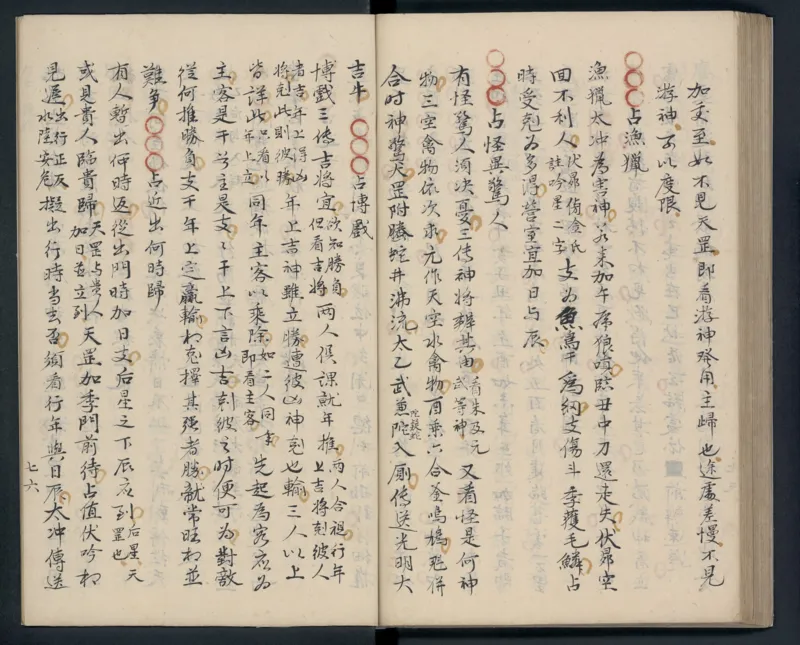 加支至如不見天罡即看游神發用主歸也途處差慢不見
游神可以度限
〇〇〇占漁獵
漁獵太冲為害神若来加午席狼噴臨丑中刀還走失伏昴空
回不利人伏昴俯沧氏註吟星二字支為魚鳥干為網支傷斗季獲毛鱗占
時受剋為多得營室宜加日与辰
〇〇〇占怪異驚人
有怪驚人須决憂三傳神將辨其由看朱及元武等神又看怪是何神
物三空禽物依次求元作天空水禽物酉乘六合釜鳴鴉飛併
合时神驚犬罡附螣蛇井沸流太乙武蒐陀陀殺蛇入厠傳送光明大
吉牛〇〇〇占博戲
博戲三傳吉將宜欲知勝負但看吉將兩人俱課就年推兩人合祖行年上吉將刻彼人
者吉年上得凶將剋此則彼勝年上吉神雖立勝遭彼凶神剋也輸三人以上
皆詳此只看以年上立同年主客以乘除如二人同年即看主客先起為客应為
主客是干兮主是支支干上下言凶吉刻彼之时便可為對敵
從何推勝負支干年上定贏輸相剋擇其强者勝就常旺相並
難争〇〇〇占近出何時歸
有人暫出何時返從出門時加日支后星之下辰应到后星天罡也天
或見貴人臨貴歸天罡与贵人加日辰立到天罡加季門前待占值伏吟相
見遲出行正反水陸安危擬出行時当去否須看行年與日辰太冲傳送
七六